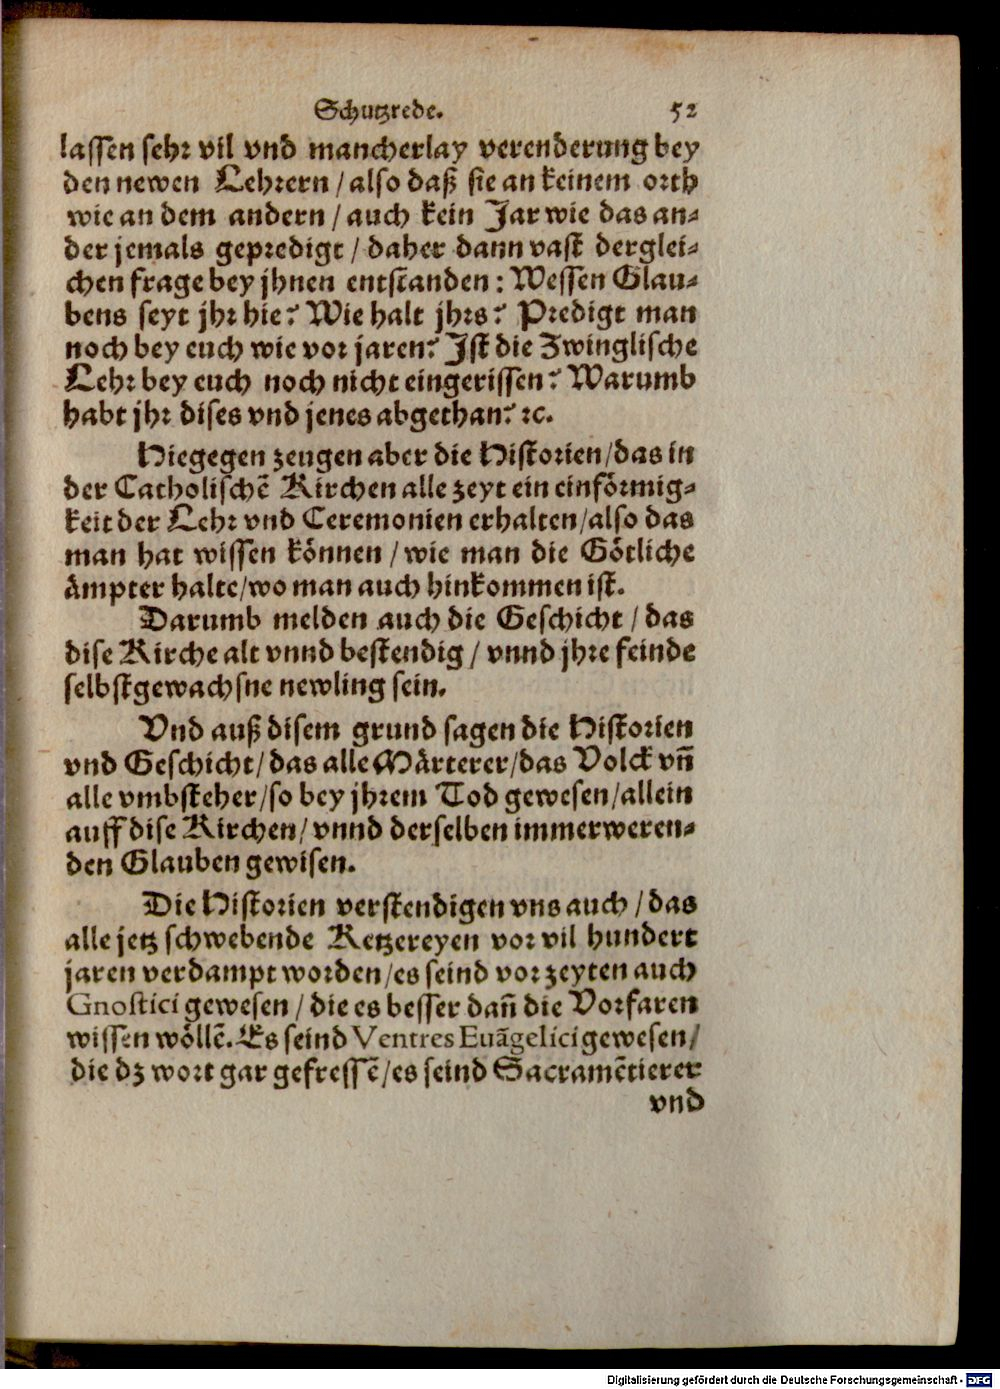 Schutzrede. 52
lassen sehr vil vnd mancherlay verenderung bey
den newen Lehrern / also daß sie an keinem orth
wie an dem andern / auch kein Jar wie das an-
der jemals geprediget / daher dann vast derglei-
chen frage bey jhnen entstanden : Wessen Glau-
bens seyt jhr hie? Wie halt jhrs? Predigt man
noch bey euch wie vor jaren? Jst die Zwinglische
Lehr bey euch noch nicht eingerissen? Warumb
habt jhr dises vnd jenes abgethan? ꝛc.
Hiegegen zeugen aber die Historien/das in
der Catholischẽ Kirchen alle zeyt ein einförmig-
keit der Lehr vnd Ceremonien erhalten/also das
man hat wissen können / wie man die Götliche
ämpter halte/wo man auch hinkommen ist.
Darumb melden auch die Geschicht / das
dise Kirche alt vnnd bestendig / vnnd jhre feinde
selbstgewachsne newling sein.
Vnd auß disem grund sagen die Historien
vnd Geschicht/das alle Märterer/das Volck vñ
alle vmbsteher/so bey jhrem Tod gewesen/allein
auff dise Kirchen/vnnd derselben immerweren-
den Glauben gewisen.
Die Historien verstendigen vns auch / das
alle jetz schwebende Ketzereyen vor vil hundert
jaren verdampt worden/es seind vor zeyten auch
Gnostici gewesen / die es besser dañ die Vorfaren
wissen wöllẽ. Es seind Ventres Euãgelici gewesen/
die dz wort gar gefressẽ/es seind Sacramẽtierer
vnd
Digitalisierung gefördert durch die Deutsche Forschungsgemeinschaft - DFG